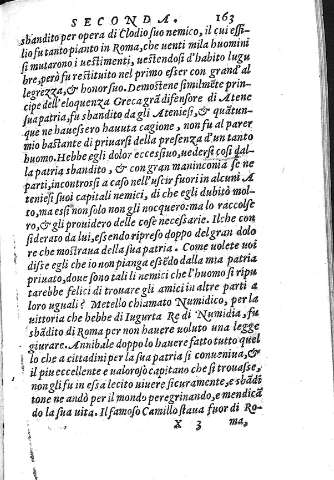 SECONDA. 163
sbandito per opera di Clodio suo nemico, il cui essi-
lio fu tanto pianto in Roma, che uenti mila huomini
si mutarono i uestimenti, uestẽdosi d'habito lugu
bre, però fu restituito nel primo esser con grand'al
legrezza, & honor suo. Demostene similmẽte prin-
cipe dell'eloquenza Greca grã difensore di Atene
sua patria, fu sbandito da gli Ateniesi, & quãtun-
que ne hauessero hauuta cagione, non fu al parer
mio bastante di priuarsi della presenza d'un tanto
huomo. Hebbe egli dolor eccessiuo, uedersi così dal-
la patria sbandito, & con gran maninconia se ne
parti, incontrossi a caso nell'uscir fuori in alcuni A
teniesi suoi capitali nemici, di che egli dubitò mol-
to, ma essi non solo non gli nocquero: ma lo raccolse
ro, & gli prouidero delle cose necessarie. Il che con
siderato da lui, essendo ripreso doppo del gran dolo
re che mostraua della sua patria. Come uolete uoi
disse egli che io non pianga essẽdo dalla mia patria
priuato, doue sono tali li nemici che l'huomo si ripu
tarebbe felici di trouare gli amici in altre parti a
loro uguali? Metello chiamato Numidico, per la
uittoria che hebbe di Iugurta Re di Numidia, fu
sbãdito di Roma per non hauere uoluto una legge
giurare. Annibale doppo lo hauere fatto tutto quel
lo che a cittadini per la sua patria si conueniua, &
il piu eccellente e ualoroso capitano che si trouasse,
non gli fu in essa lecito uiuere sicuramente, e sbãdi
tone ne andò per il mondo peregrinando, e mendicã
do la sua vita. Il famoso Camillo staua fuor di Ro-
X 3 ma,